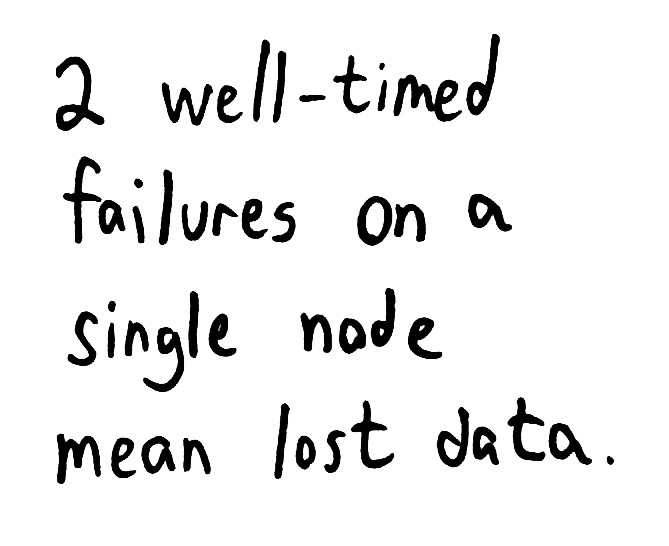 2 well-timed
failures on a
single node
mean lost data.